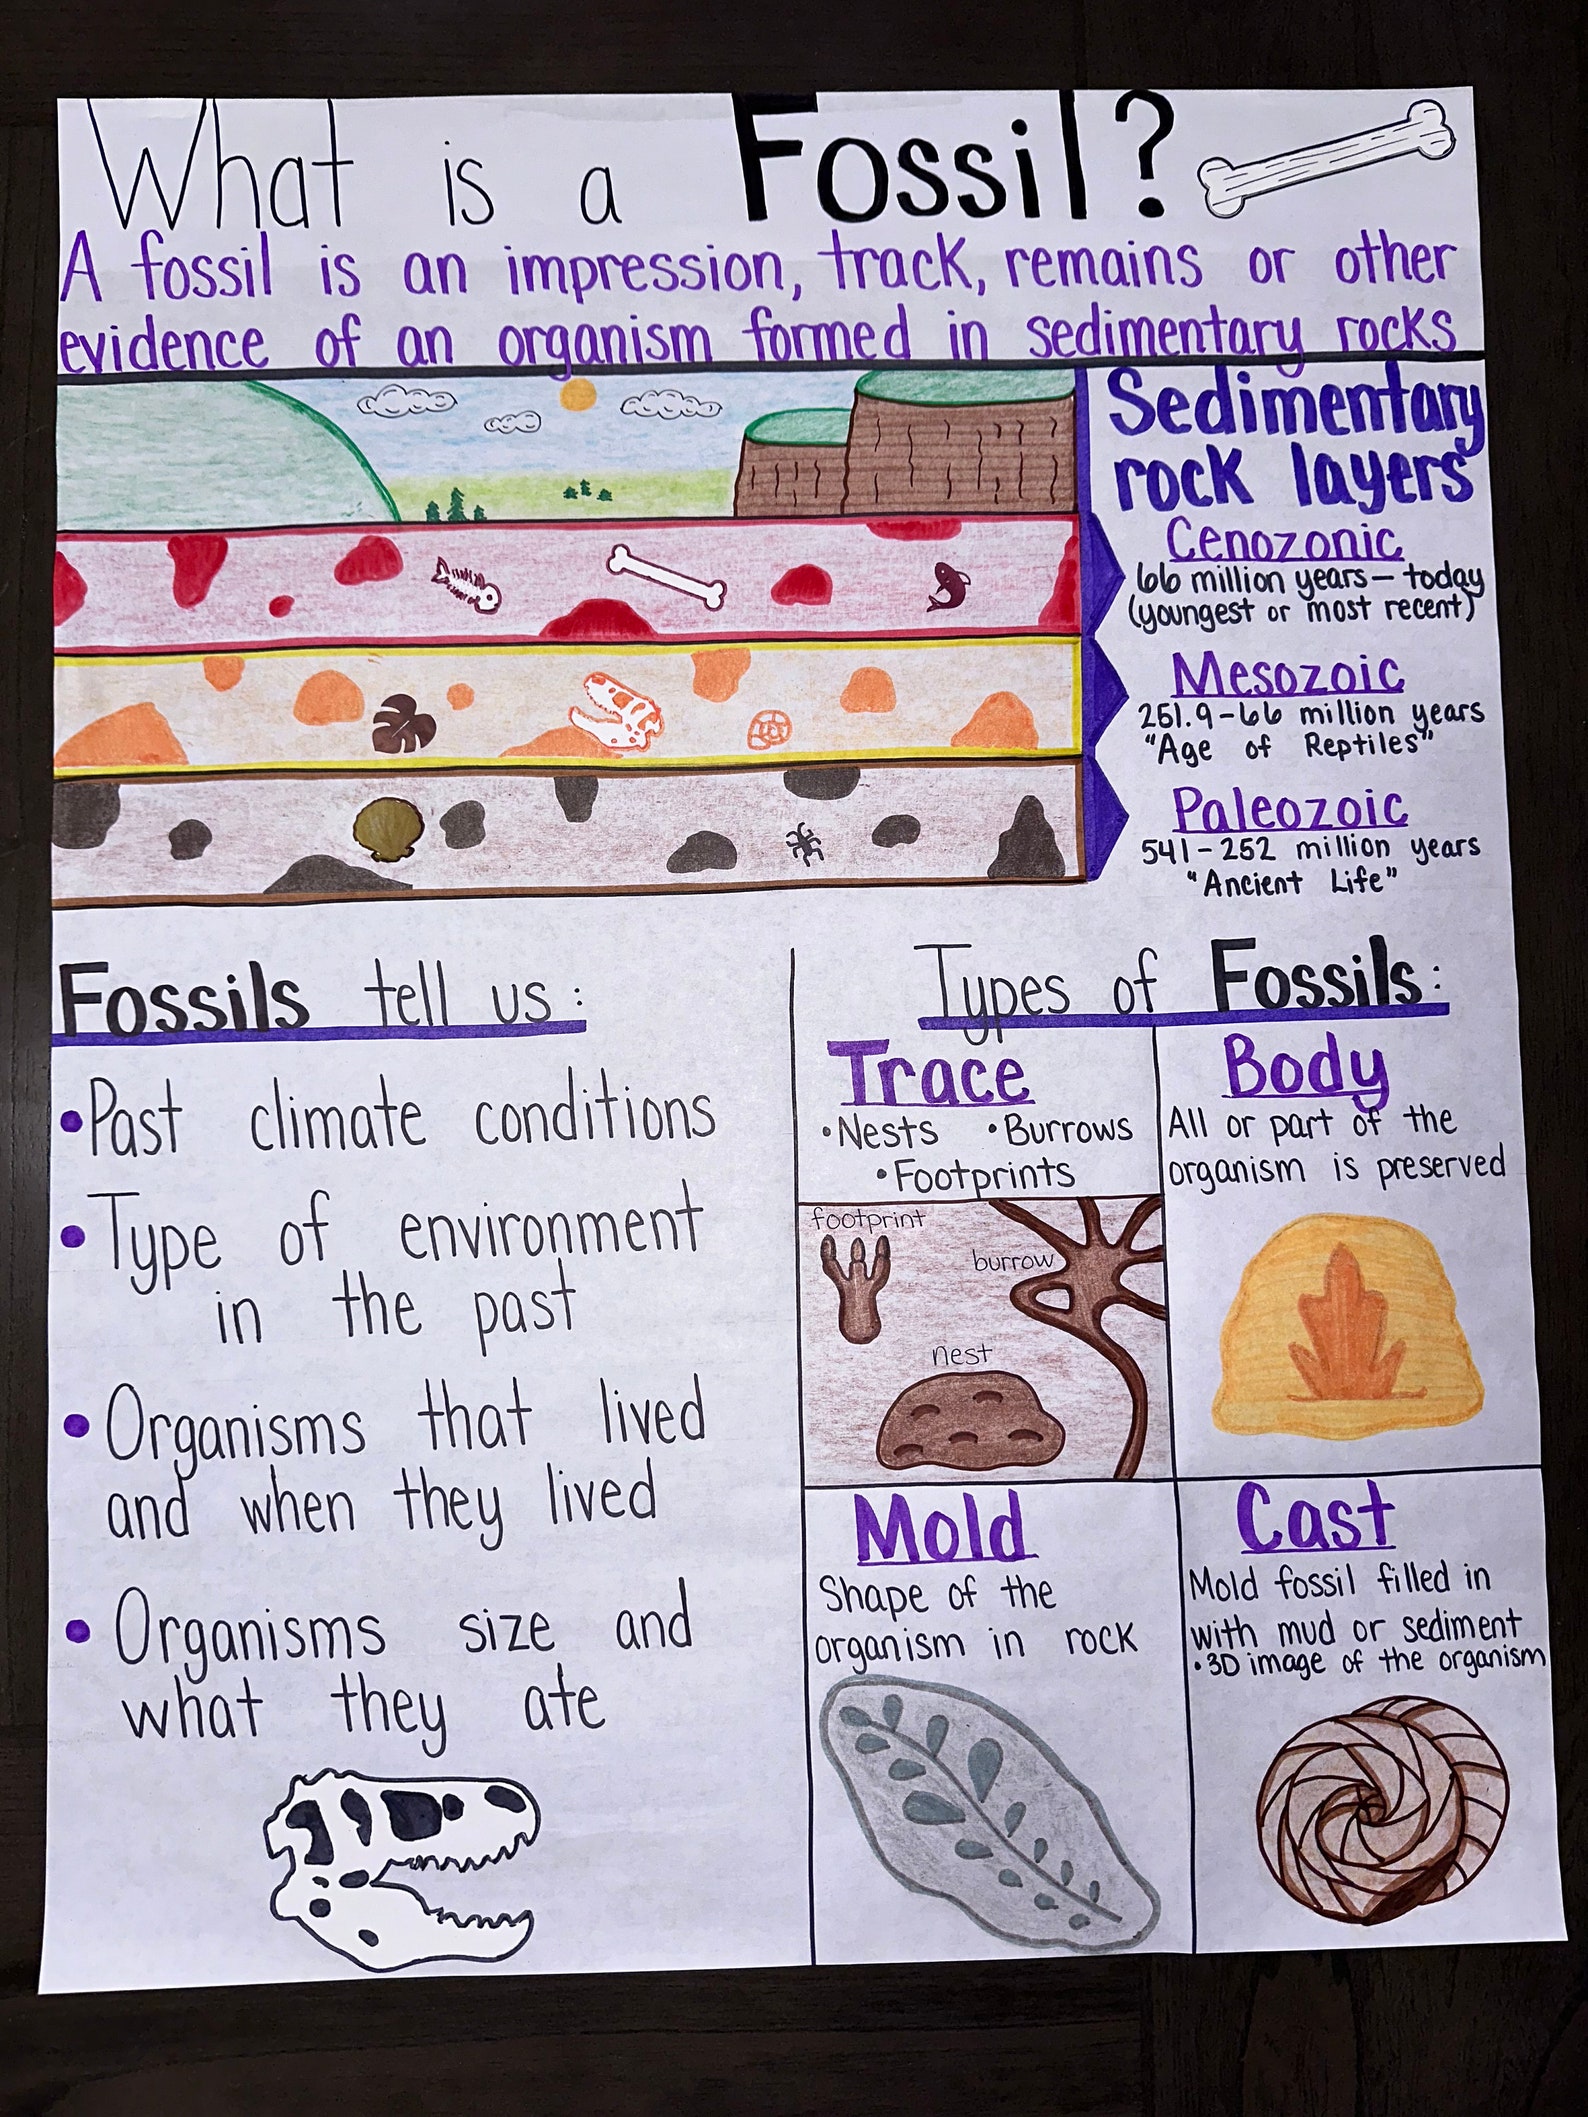 What is a Fossil?
A fossil is an impression, track, remains or other
evidence of an organism formed in sedimentary rocks
Sedimentary
rock layers
Cenozonic
66 million years - today
(youngest or most recent)
Mesozoic
251.9-66 million years
"Age of Reptiles"
Paleozoic
541-252 million years
"Ancient Life"
Fossils tell us:
• Past climate conditions
• Type of environment
in the past
• Organisms that lived
and when they lived
• Organisms size and
what they ate
Types of Fossils:
Trace
• Nests • Burrows
• Footprints
footprint
burrow
nest
Body
All or part of the
organism is preserved
Mold
Shape of the
organism in rock
Cast
Mold fossil filled in
with mud or sediment
• 3D image of the organism